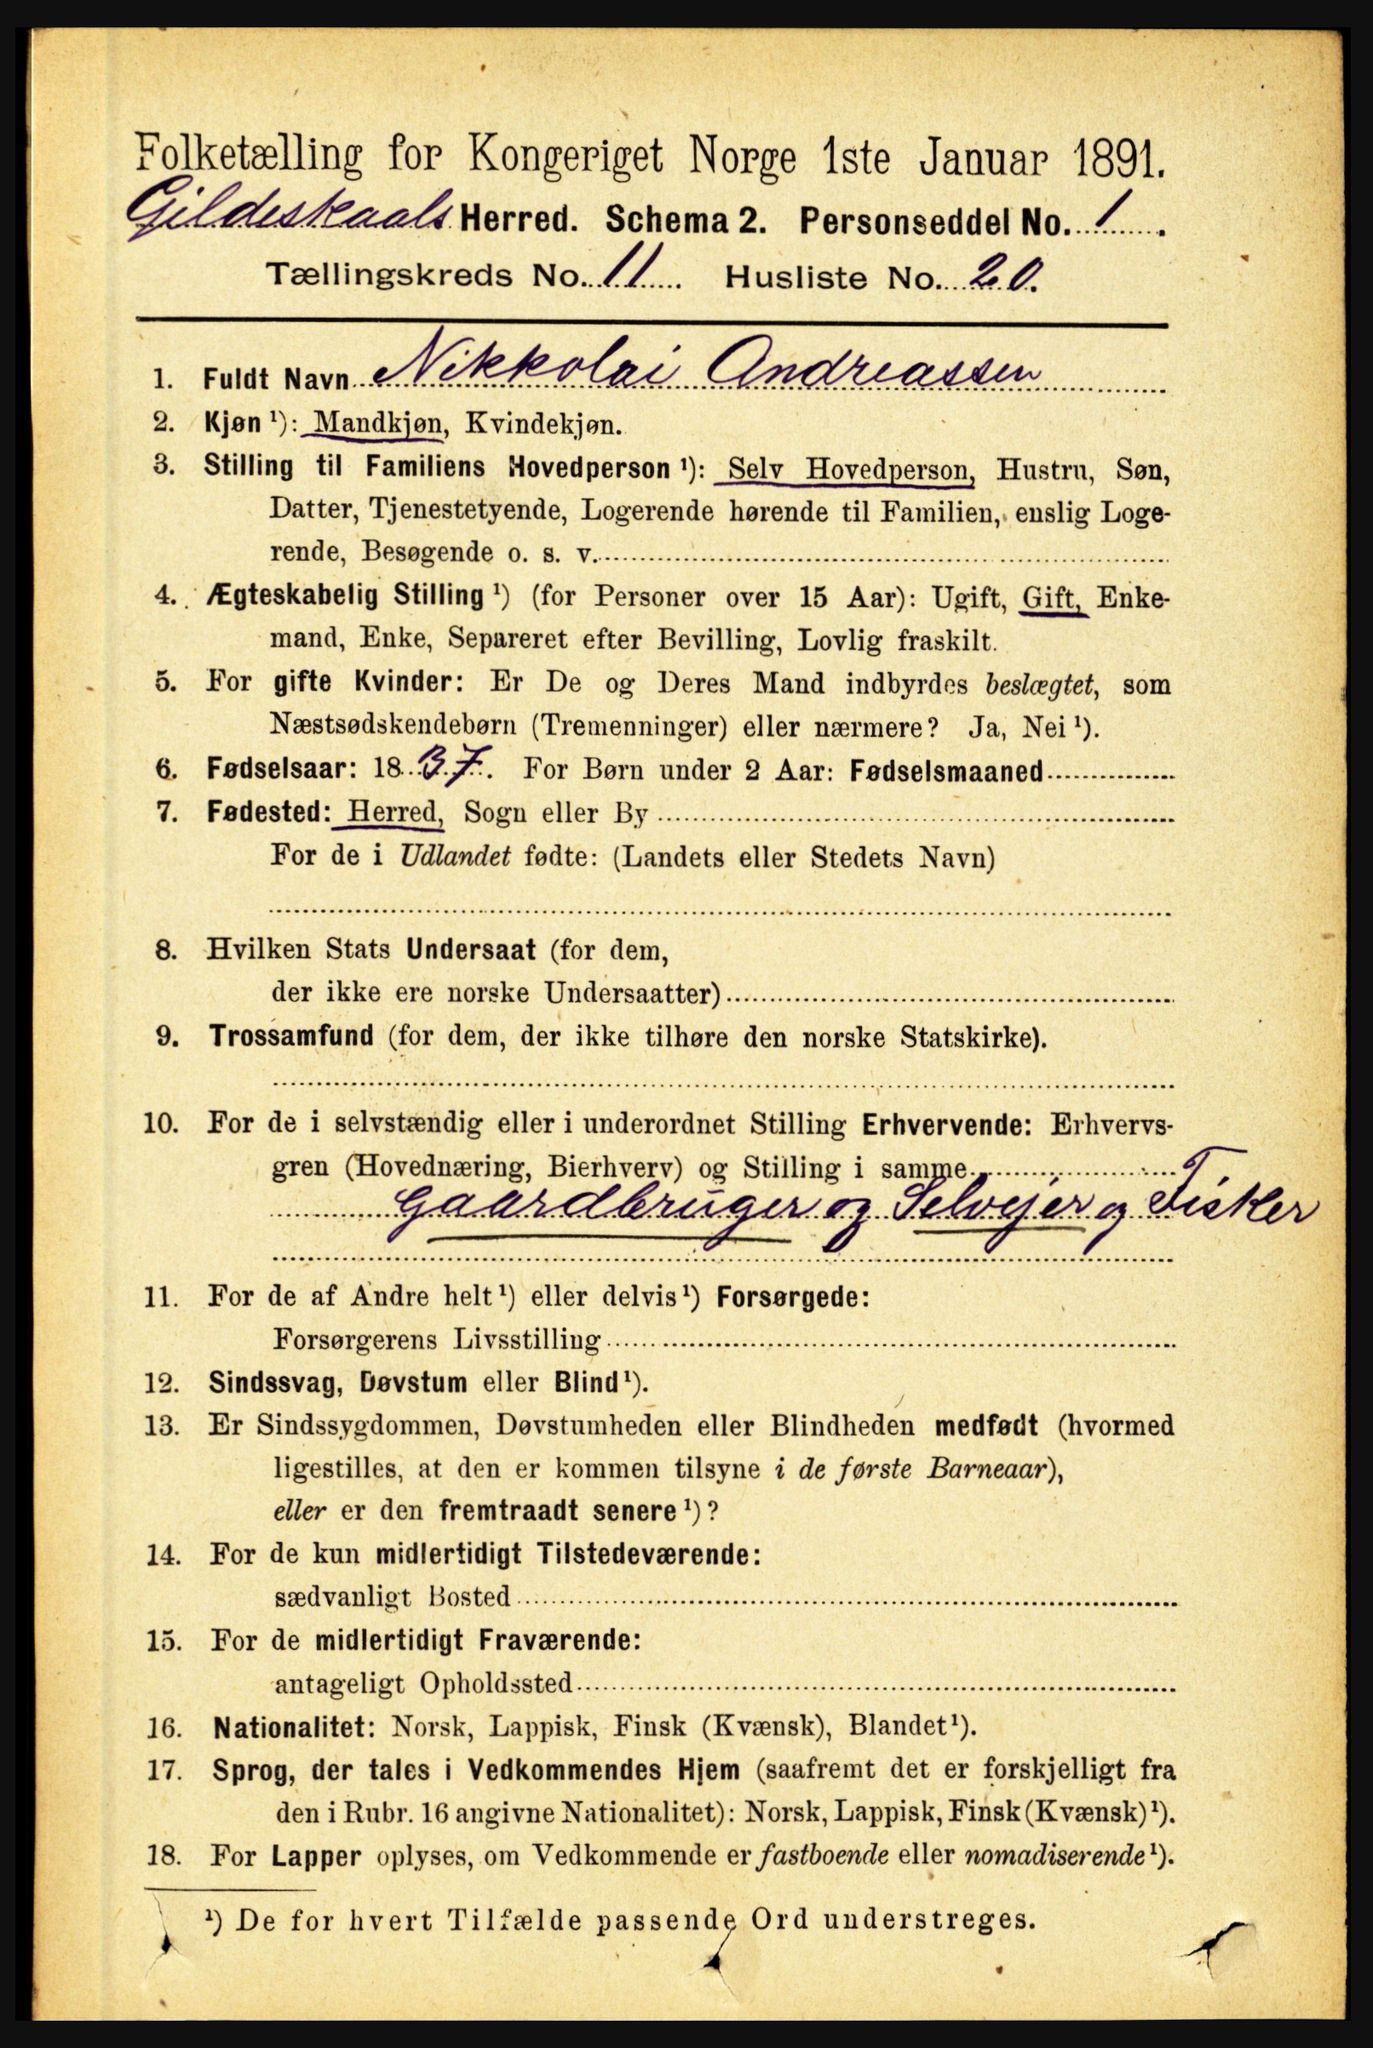 Folketælling for Kongeriget Norge 1ste Januar 1891.
Gildeskaals Herred. Schema 2. Personseddel No. 1.
Tællingskreds No. 11. Husliste No. 20.
1. Fuldt Navn Nikkolai Andreassen
2. Kjøn ¹): Mandkjøn, Kvindekjøn.
3. Stilling til Familiens Hovedperson ¹): Selv Hovedperson, Hustru, Søn,
Datter, Tjenestetyende, Logerende hørende til Familien, enslig Loge-
rende, Besøgende o. s. v.
4. Ægteskabelig Stilling ¹) (for Personer over 15 Aar): Ugift, Gift, Enke-
mand, Enke, Separeret efter Bevilling, Lovlig fraskilt.
5. For gifte Kvinder: Er De og Deres Mand indbyrdes beslægtet, som
Næstsødskendebørn (Tremenninger) eller nærmere? Ja, Nei ¹).
6. Fødselsaar: 1837. For Børn under 2 Aar: Fødselsmaaned
7. Fødested: Herred, Sogn eller By
For de i Udlandet fødte: (Landets eller Stedets Navn)
8. Hvilken Stats Undersaat (for dem,
der ikke ere norske Undersaatter)
9. Trossamfund (for dem, der ikke tilhøre den norske Statskirke).
10. For de i selvstændig eller i underordnet Stilling Erhvervende: Erhvervs-
gren (Hovednæring, Bierhverv) og Stilling i samme
Gaardbruger og Selvejer og Fisker
11. For de af Andre helt ¹) eller delvis ¹) Forsørgede:
Forsørgerens Livsstilling
12. Sindssvag, Døvstum eller Blind ¹).
13. Er Sindssygdommen, Døvstumheden eller Blindheden medfødt (hvormed
ligestilles, at den er kommen tilsyne i de første Barneaar),
eller er den fremtraadt senere ¹)?
14. For de kun midlertidigt Tilstedeværende:
sædvanligt Bosted
15. For de midlertidigt Fraværende:
antageligt Opholdssted
16. Nationalitet: Norsk, Lappisk, Finsk (Kvænsk), Blandet ¹).
17. Sprog, der tales i Vedkommendes Hjem (saafremt det er forskjelligt fra
den i Rubr. 16 angivne Nationalitet): Norsk, Lappisk, Finsk (Kvænsk) ¹).
18. For Lapper oplyses, om Vedkommende er fastboende eller nomadiserende ¹).
¹) De for hvert Tilfælde passende Ord understreges.